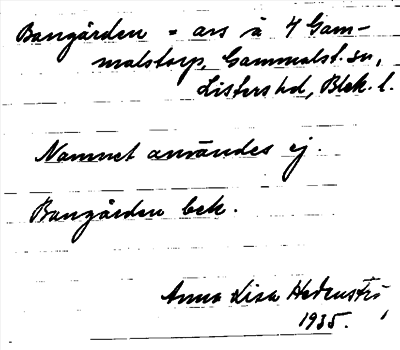 Bangården = ars å 4 Gam-
malstorp, Gammalst. sn,
Listers hd, Blek. l.
Namnet användes ej.
Bangården bek.
Anna Lisa Hedenström
1935.